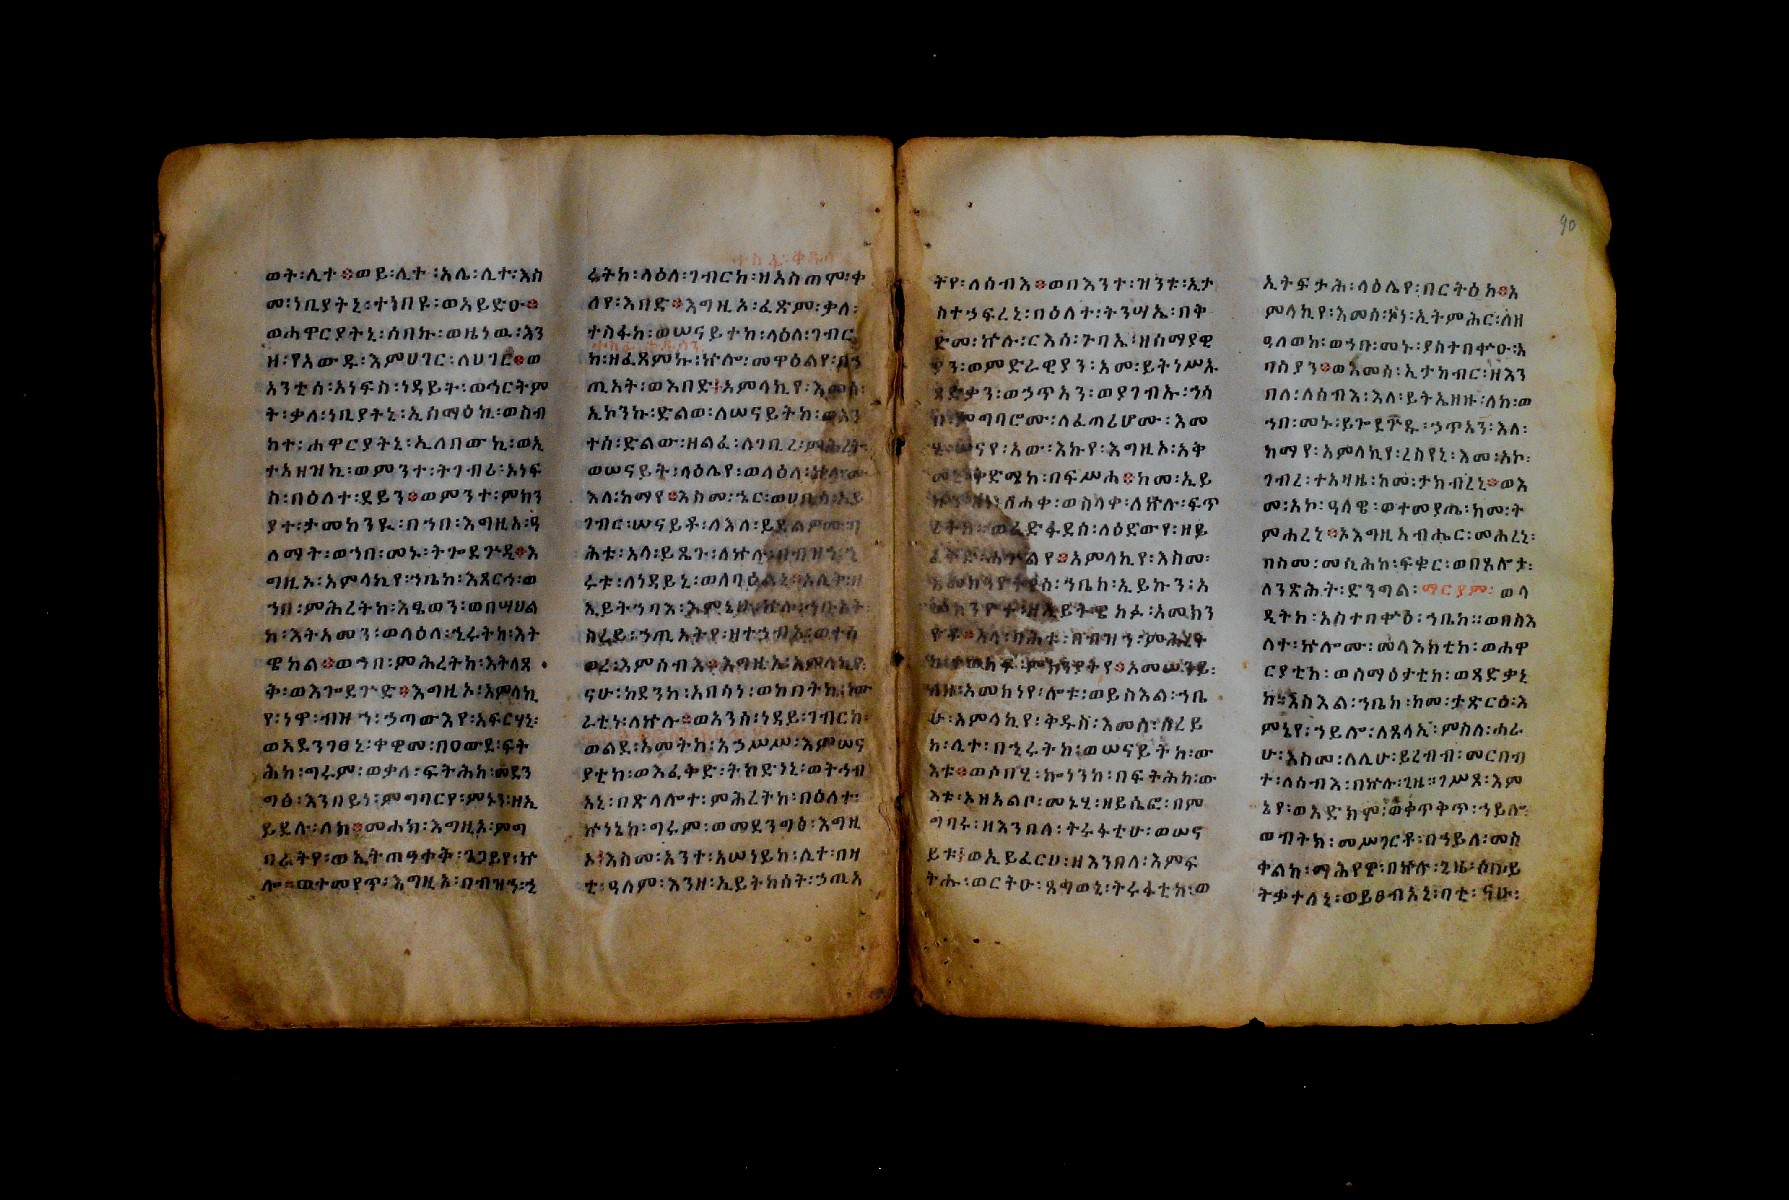 ወት፡ሊተ፨ወይ፡ሊተ፡አሌ፡ሊተ፡እስ
መ፡ነቢያትኒ፡ተነበዩ፡ወአይድዑ፨
ወሐዋርያትኒ፡ሰበኩ፡ወዜነዉ፡እን
ዘ፡የአውዱ፡እምሀገር፡ለሀገር፨ወ
አንቲሰ፡አነፍስ፡ነዳይት፡ወኅርትም
ት፡ቃለ፡ነቢያትኒ፡ኢሰማዕኪ፡ወስብ
ከተ፡ሐዋርያትኒ፡ኢለበውኪ፡ወኢ
ተአዘዝኪ፡ወምንተ፡ትገብሪ፡አነፍ
ስ፡በዕለተ፡ደይን፨ወምንተ፡ምክን
ያተ፡ታመክንዪ፡በኀበ፡እግዚአ፡ዓ
ለማት፡ወኀበ፡መኑ፡ትጐይዪ፨እ
ግዚኦ፡አምላኪየ፡ኀቤከ፡እጸርኅ፡ወ
ኀበ፡ምሕረትከ፡እዔወን፡ወበሣህል
ከ፡እትአመን፡ወላዕለ፡ኂሩትከ፡እት
ዌከል፨ወኀበ፡ምሕረትከ፡እትላጸ
ቅ፡ወእጐይይ፨እግዚኦ፡አምላኪ
የ፡ነዋ፡ብዝኀ፡ኃጣውእየ፡አፍርሃኒ፡
ወአደንገፀኒ፡ቀዊመ፡በዐውደ፡ፍት
ሕከ፡ግሩም፡ወቃለ፡ፍትሕከ፡መደን
ግፅ፡እንበይነ፡ምግባርየ፡ምኑን፡ዘኢ
ይደሉ፡ለከ፨መሐከ፡እግዚኦ፡ምግ
ባራትየ፡ወኢትጠዓቀቅ፡ጌጋይየ፡ኵ
ሎ፡ወተመየጥ፡እግዚኦ፡በብዝኀ፡ኂ
ሩትከ፡ላዕለ፡ገብርከ፡ዘአስጠሞ፡ቀ
ላየ፡አበድ፨እግዚኦ፡ፈጽም፡ቃለ፡
ተስፋከ፡ወሠናይተከ፡ላዕለ፡ገብር
ከ፡ዘፈጸምኩ፡ኵሎ፡መዋዕልየ፡በኀ
ጢአት፡ወእበድ፡አምላኪየ፡እመሰ፡
ኢኮንኩ፡ድልወ፡ለሠናይትከ፡ወአን
ተሰ፡ድልው፡ዘልፈ፡ለገቢረ፡ምሕረት
ወሠናይት፡ላዕሌየ፡ወላዕለ፡ኵሎሙ
እለ፡ከማየ፨እስመ፡ኄር፡ወሀቢሰ፡ኢይ
ገብር፡ሠናይቶ፡ለእለ፡ይደልዎሙ፡
ሕቱ፡አላ፡ይጼጉ፡ለኵሉ፡በብዝኀ፡ኂ
ሩቱ፡ለነዳይኒ፡ወለባዕልኒ
ኢይትኀባእ፡እምኔከ፡ኵሉ፡ኀቡአት
ከሬይ፡ኃጢአትየ፡ዘተኃብአ፡ወተሰ
ወረ፡እምሰብእ፨እግዚኦ፡አምላኪየ፡
ናሁ፡ከደንከ፡አበሳነ፡ወከበትከ፡ነው
ራቲነ፡ለኵሉ፨ወአንሰ፡ነዳይ፡ገብርከ፡
ወልደ፡አመትከ፡አኃሥሥ፡እምሠና
ያቲከ፡ወእፈቅድ፡ትከድነኒ፡ወትኅብ
አኒ፡በጽላሎተ፡ምሕረትከ፡በዕለተ፡
ኵነኔከ፡ግሩም፡ወመደንግፅ፡እግዚ
ኦ፡እስመ፡አንተ፡አሠነይከ፡ሊተ፡በዛ
ቲ፡ዓለም፡እንዘ፡ኢይትከሰት፡ኃጢአ
ትየ፡ለሰብእ፨ወበእንተ፡ዝንቱ፡ኢታ
ስተኃፍረኒ፡በዕለተ፡ትንሣኤ፡በቅ
ድመ፡ኵሉ፡ርእሰ፡ጉባኤ፡ዘሰማያዊ
ያን፡ወምድራዊያን፡አመ፡ይትነሥኡ
ጻድቃን፡ወኃጥአን፡ወያገብኡ፡ኀሳ
በ፡ምግባሮሙ፡ለፈጣሪሆሙ፡እመ
ሂ፡ሠናየ፡አው፡እኩየ፡እግዚኦ፡አቅ
መኒ፡ቅድሜከ፡በፍሥሐ፨ከመ፡ኢይ
ኩን፡ሰሐቀ፡ወስላቀ፡ለኵሉ፡ፍጥ
ረትከ፡ወፈድፋደሰ፡ለዕደውየ፡ዘይ
ፈቅዱ፡ሐጕልየ፨አምላኪየ፡እስመ፡
አመክንዮትየሰ፡ኀቤከ፡ኢይኩን፡አ
መክንዮተ፡ዘኢይትዌከፉ፡አመክን
ዮቶ፨አላ፡በሕቱ፡በብዝኀ፡ምሕረት
ከ፡ተወከፍ፡ምክንያትየ፨እመሠናይ፡
ለዘ፡አመክነየ፡ሎቱ፡ወይስእል፡ኀቤ
ሁ፡አምላኪየ፡ቅዱስ፡እመሰ፡ሰረይ
ከ፡ሊተ፡በኂሩትከ፡ወሠናይትከ፡ው
እቱ፨ወሶበሂ፡ኰነንከ፡በፍትሕከ፡ው
እቱ፡እዝአልቦ፡መኑሂ፡ዘይሴፎ፡በም
ግባሩ፡ዘእንበለ፡ትሩፋቲሁ፡ወሠና
ይቱ፡ወኢይፈርሀ፡ዘእንበለ፡እምፍ
ትሑ፡ወርትዑ፡ጸግወኒ፡ትሩፋቲከ፡ወ
ኢትፍታሕ፡ላዕሌየ፡በርትዕከ፨አ
ምላኪየ፡እመሰ፡ኮነ፡ኢትምሕር፡ለዘ
ዓለወከ፡ወኀበ፡መኑ፡ያስተበቍዑ፡አ
ባስያን፨ወእመሰ፡ኢታከብር፡ዘእን
በለ፡ለሰብእ፡እለ፡ይትኤዘዙ፡ለከ፡ወ
ኀበ፡መኑ፡ይጐይዩ፡ኃጥአን፡እለ፡
ከማየ፡አምላኪየ፡ረስየኒ፡እመ፡አኮ፡
ገብረ፡ተአዛዜ፡ከመ፡ታክብረኒ፨ወእ
መ፡አኮ፡ዓላዌ፡ወተመያጤ፡ከመ፡ት
ምሐረኒ፨እእግዚአብሔር፡መሐረኒ፡
በስመ፡መሲሕከ፡ፍቁር፡ወበጸሎታ፡
ለንጽሕት፡ድንግል፡ማርያም፡ወላ
ዲትከ፡አስተበቍዕ፡ኀቤከ፡፡ወበስእ
ለተ፡ኵሎሙ፡መላእክቲከ፡ወሐዋ
ርያቲከ፡ወሰማዕታቲከ፡ወጻድቃኒ
ከ፡እስእል፡ኀቤከ፡ከመ፡ታጽርዕ፡እ
ምኔየ፡ኀይሎ፡ለጸላኢ፡ምስለ፡ሐራ
ሁ፡እስመ፡ለሊሁ፡ይረብብ፡መርበብ
ተ፡ለሰብእ፡በኵሉ፡ጊዜ፡፡ገሥጾ፡እም
ኔየ፡ወአድክም፡ወቀጥቅጥ፡ኀይሎ፡
ወብትክ፡መሥገርቶ፡በኃይለ፡መስ
ቀልከ፡ማሕየዊ፡በኵሉ፡ጊዜ፡ሶበ፡ይ
ትቃተለኒ፡ወይፀብአኒ፡ባቲ፡ናሁ፡